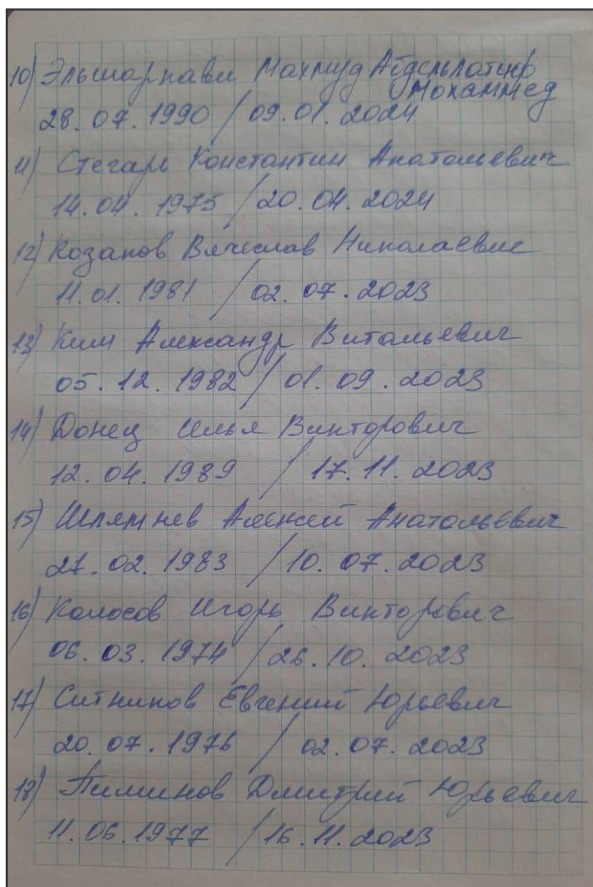 10) Эльшарнави Махмуд Абдельлатиф
Мохаммед
28.07.1990 / 09.01.2024
11) Стегарь Константин Анатольевич
14.04.1975 / 20.04.2024
12) Козаков Вячеслав Николаевич
11.01.1981 / 02.07.2023
13) Ким Александр Витальевич
05.12.1982 / 01.09.2023
14) Донец Илья Викторович
12.04.1989 / 17.11.2023
15) Шлямнев Алексей Анатольевич
27.02.1983 / 10.07.2023
16) Колосов Игорь Викторович
06.03.1974 / 26.10.2023
17) Ситников Евгений Юрьевич
20.07.1976 / 02.07.2023
18) Пиминов Дмитрий Юрьевич
11.06.1977 / 16.11.2023